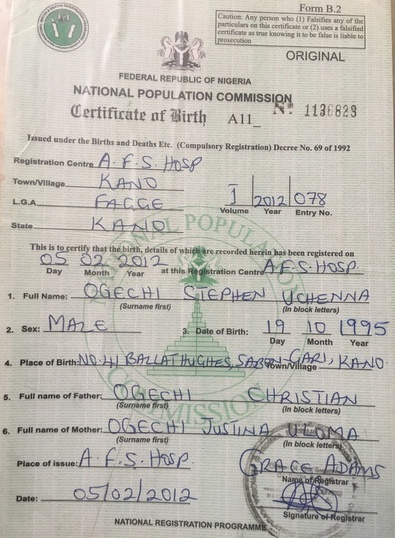 Form B.2
Caution: Any person who (1) Falsifies any of the
particulars on this certificate or (2) uses a falsified
certificate as true knowing it to be false is liable to
prosecution
ORIGINAL
FEDERAL REPUBLIC OF NIGERIA
NATIONAL POPULATION COMMISSION
Certificate of Birth A11_ No 1136823
Issued under the Births and Deaths Etc. (Compulsory Registration) Decree No. 69 of 1992
Registration Centre A.F.S. HOSP
Town/Village KANO
L.G.A FAGGE
State KANO
I 2012 078
Volume Year Entry No.
This is to certify that the birth, details of which are recorded herein has been registered on
05 02 2012 at this Registration Centre A.F.S. HOSP
Day Month Year
1. Full Name: OGECHI STEPHEN UCHENNA
(Surname first) (In block letters)
2. Sex: MALE 3. Date of Birth: 19 10 1995
Day Month Year
4. Place of Birth: NO. 41 BALLAT HUGHES, SABON-GARI, KANO.
Town/Village
5. Full name of Father: OGECHI CHRISTIAN
(Surname first) (In block letters)
6. Full name of Mother: OGECHI JUSTINA ULOMA
(Surname first) (In block letters)
Place of issue: A.F.S. HOSP GRACE ADAMS
Name of Registrar
Date: 05/02/2012
Signature of Registrar
NATIONAL REGISTRATION PROGRAMME
NATIONAL POPULATION COMMISSION